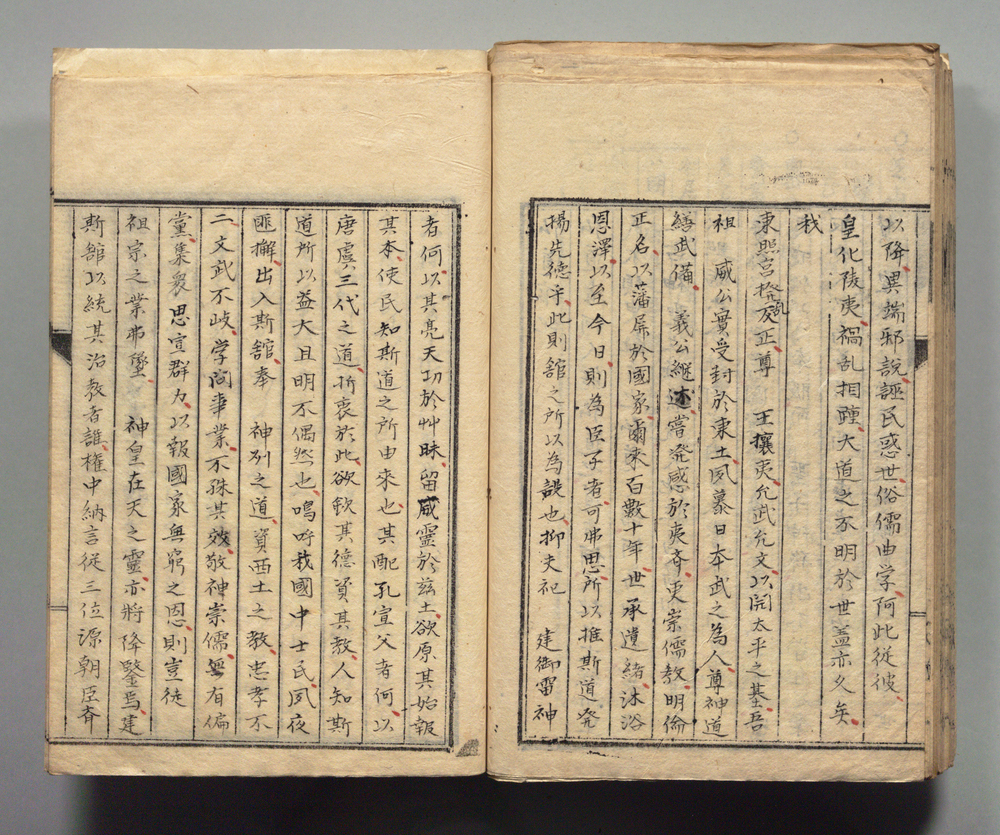 以降異端邪說誣民惑世俗儒曲学阿此従彼
皇化陵夷禍乱相踵大道之不明於世盖亦久矣
我
東照宮撥乱反正尊　王攘夷允武允文以開太平之基吾
祖　威公實受封於東土夙慕日本武之為人尊神道
繕武備　義公継述嘗発感於夷斉更崇儒教明倫
正名以藩屏於國家爾来百數十年世承遺緒沐浴
恩澤以至今日則為臣子者可弗思所以推斯道発
揚先徳乎此則舘之所以為設也抑夫祀　建御雷神
者何以其亮天功於艸昧留威靈於兹土欲原其始報
其本使民知斯道之所由来也其配孔宣父者何以
唐虞三代之道折衷於此欲欽其德資其教人知斯
道所以益大且明不偶然也嗚呼我國中士民夙夜
匪懈出入斯舘奉　神列之道資西土之教忠孝不
二文武不岐学问事業不殊其效敬神崇儒無有偏
黨集衆思宣群力以報國家無窮之恩則豈徒
祖宗之業弗墜　神皇在天之靈亦將降鑒焉建
斯舘以統其治教者誰權中納言従三位源朝臣斉